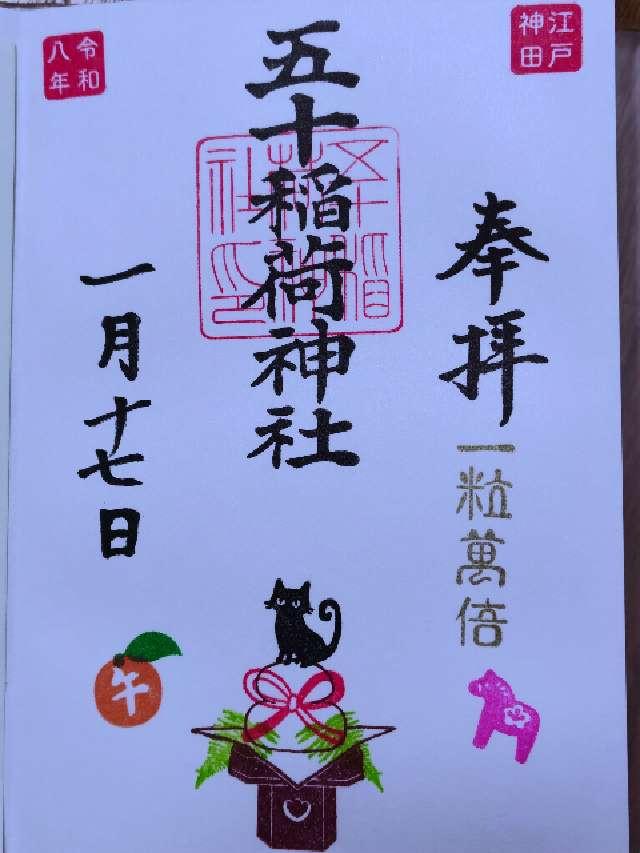 江戸
神田
奉拝
一粒萬倍
五十稲荷神社
令和
八年
一月十七日
午